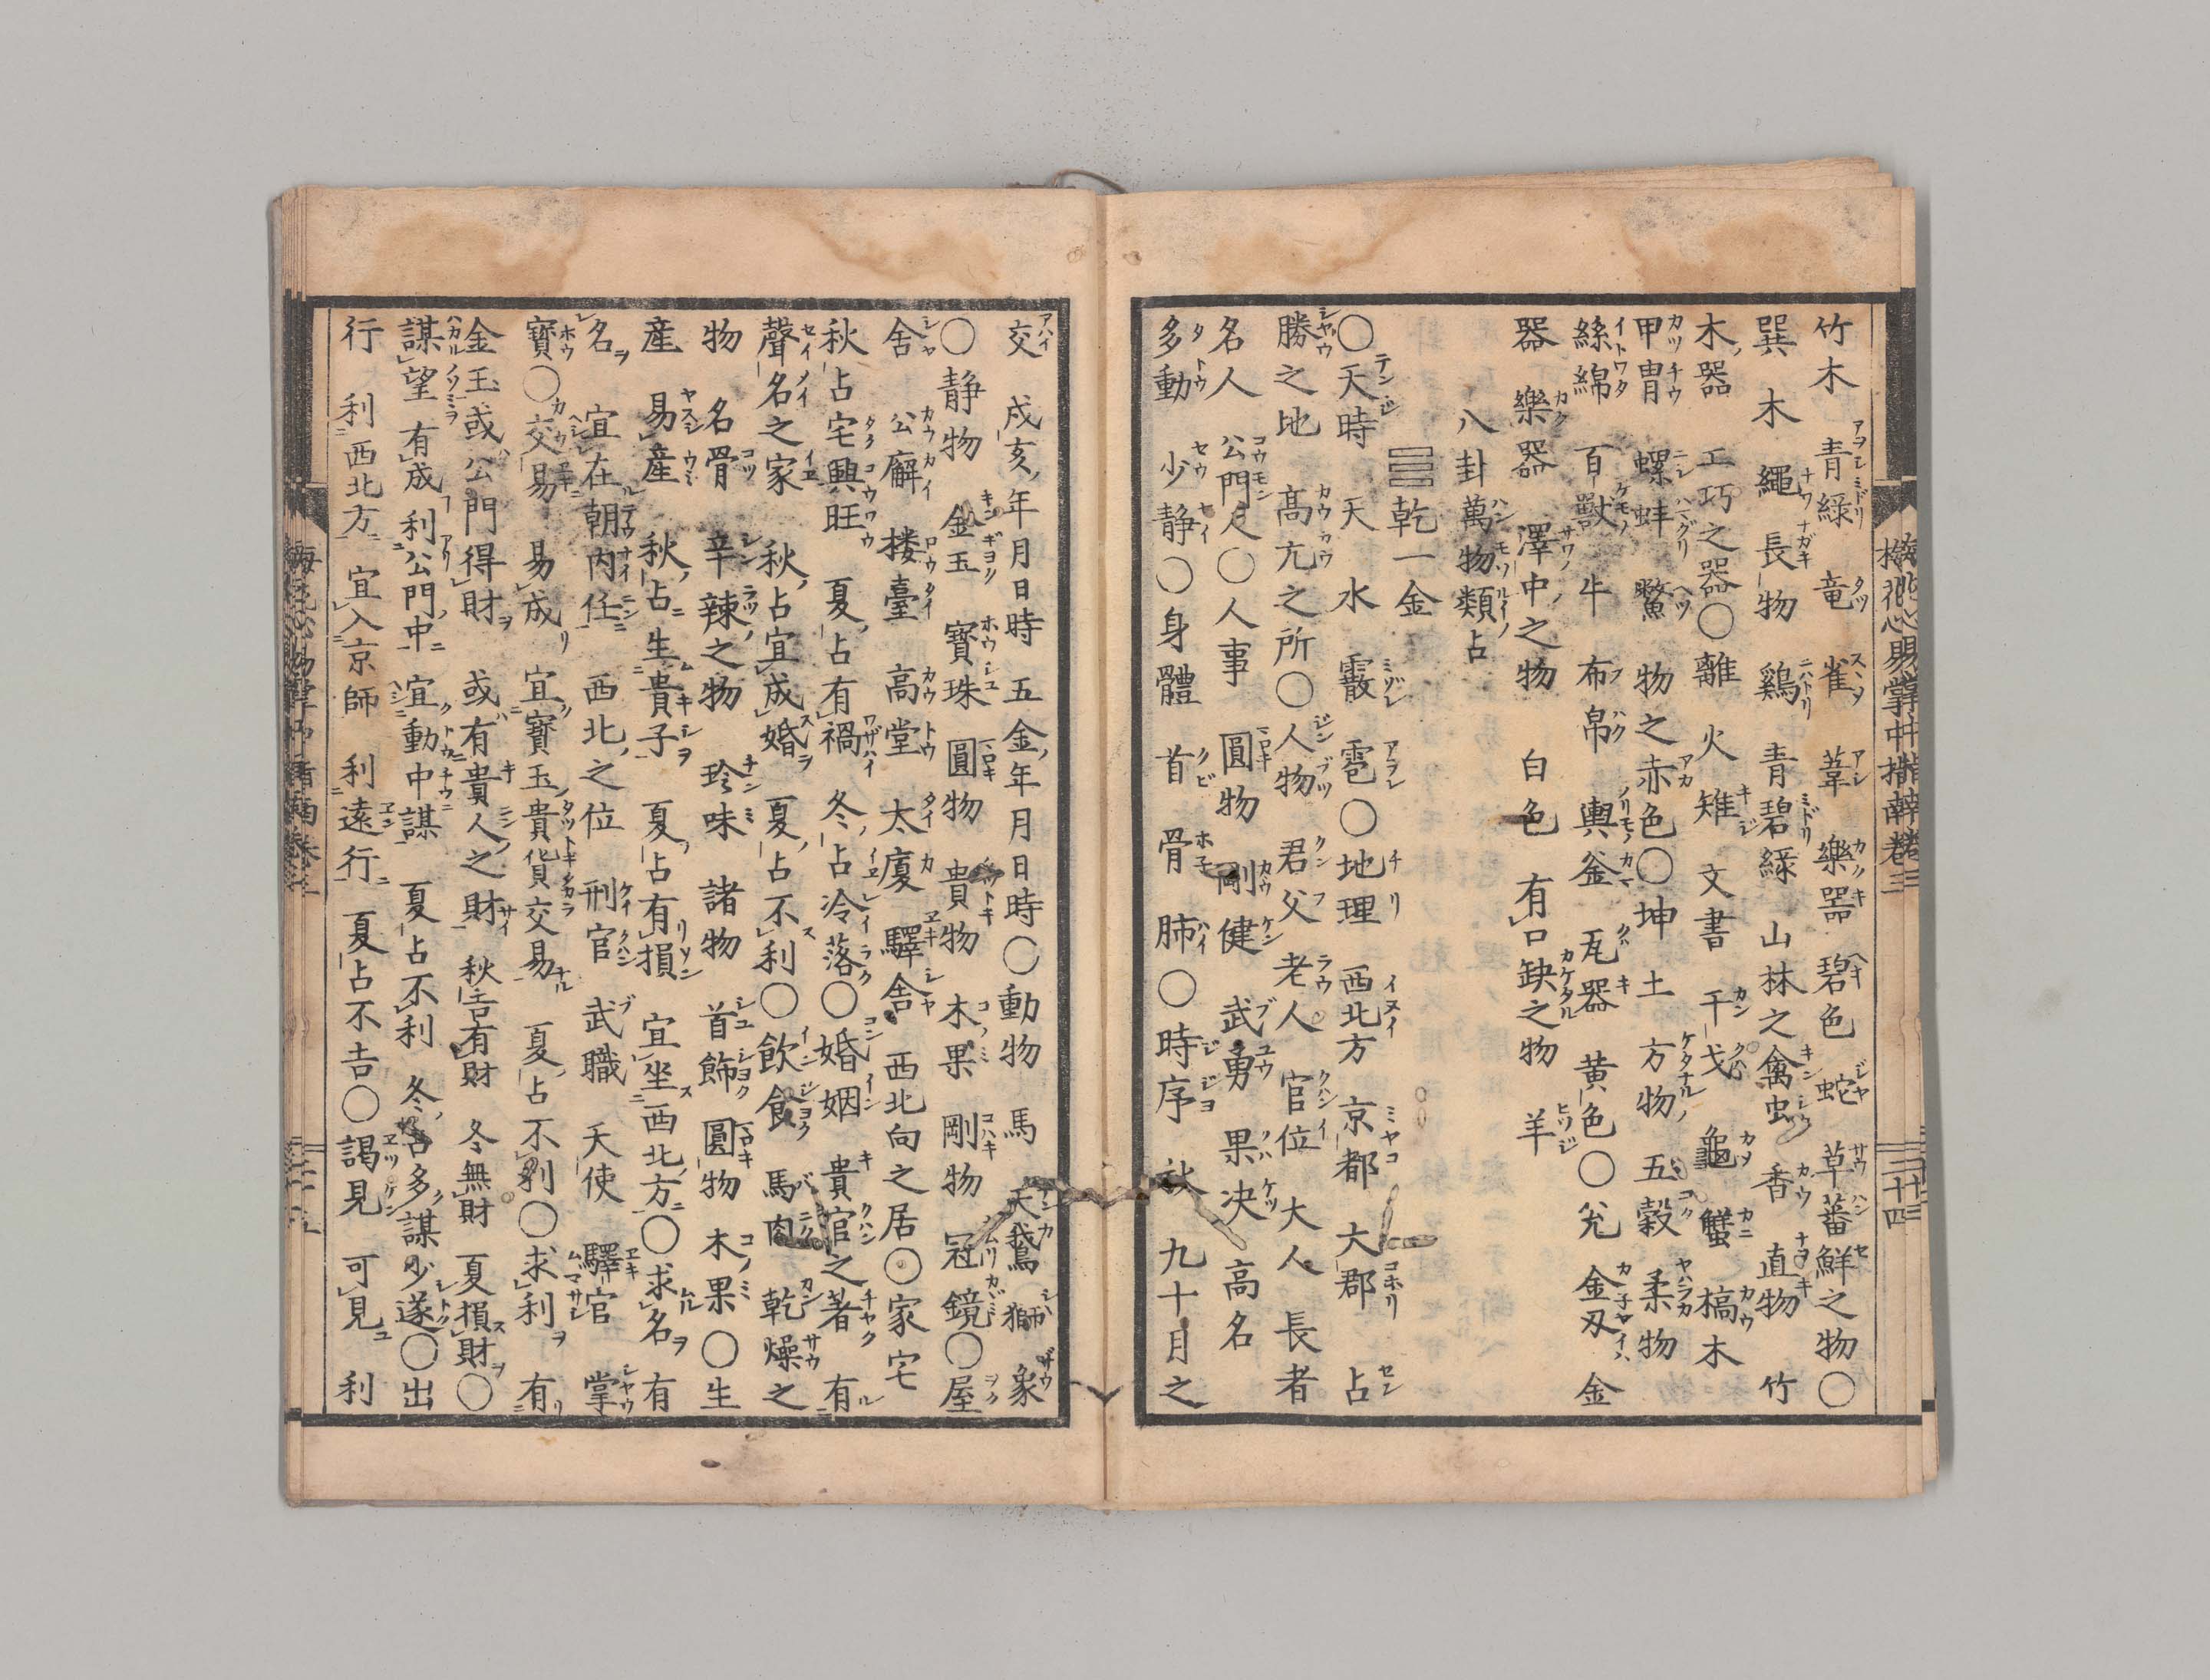 竹木　青緑　竜　雀　葦　樂器　碧色　蛇　草蕃鮮之物○
巽　木　繩　長物　鷄　青碧緑　山林之禽虫　香　直物　竹
木器　工巧之器○離　火　雉　文書　干戈　龜　蟹　槁木
甲冑　螺　蚌　鱉　物之赤色○坤　土　方物　五穀　柔物
絲綿　百獸　牛　布帛　輿　釜　瓦器　黄色○兊　金刃　金
器　樂器　澤中之物　白色　有口缺之物　羊
八卦萬物類占
☰乾一金
○天時　天　水　霰　雹○地理　西北方　京都　大郡　占
勝之地　髙亢之所○人物　君父　老人　官位　大人　長者
名人　公門人○人事　圓物　剛健　武勇　果决　高名
多動　少静○身體　首　骨　肺○時序　秋　九十月之
交　戌亥年月日時　五金年月日時○動物　馬　天鵞　獅　象
○静物　金玉　寳珠　圓物　貴物　木果　剛物　冠　鏡○屋
舍　公廨　楼臺　高堂　太廈　驛舍　西北向之居○家宅
秋占宅興旺　夏占有禍　冬占冷落○婚姻　貴官之著　有
聲名之家　秋占宜成婚　夏占不利○飲食　馬肉　乾燥之
物　名骨　辛辣之物　珍味　諸物　首飾　圓物　木果○生
産　易産　秋占生貴子　夏占有損　宜坐西北方○求名　有
名　宜在朝内任　西北之位　刑官　武職　天使　驛官　掌
寳○交易　易成　宜寳玉貴貨交易　夏占不利○求利　有
金玉或公門得財　或有貴人之財　秋占有財　冬無財　夏損財○
謀望　有成　利公門中　宜動中謀　夏占不利　冬占多謀少遂○出
行　利西北方　宜入京師　利遠行　夏占不吉○謁見　可見　利